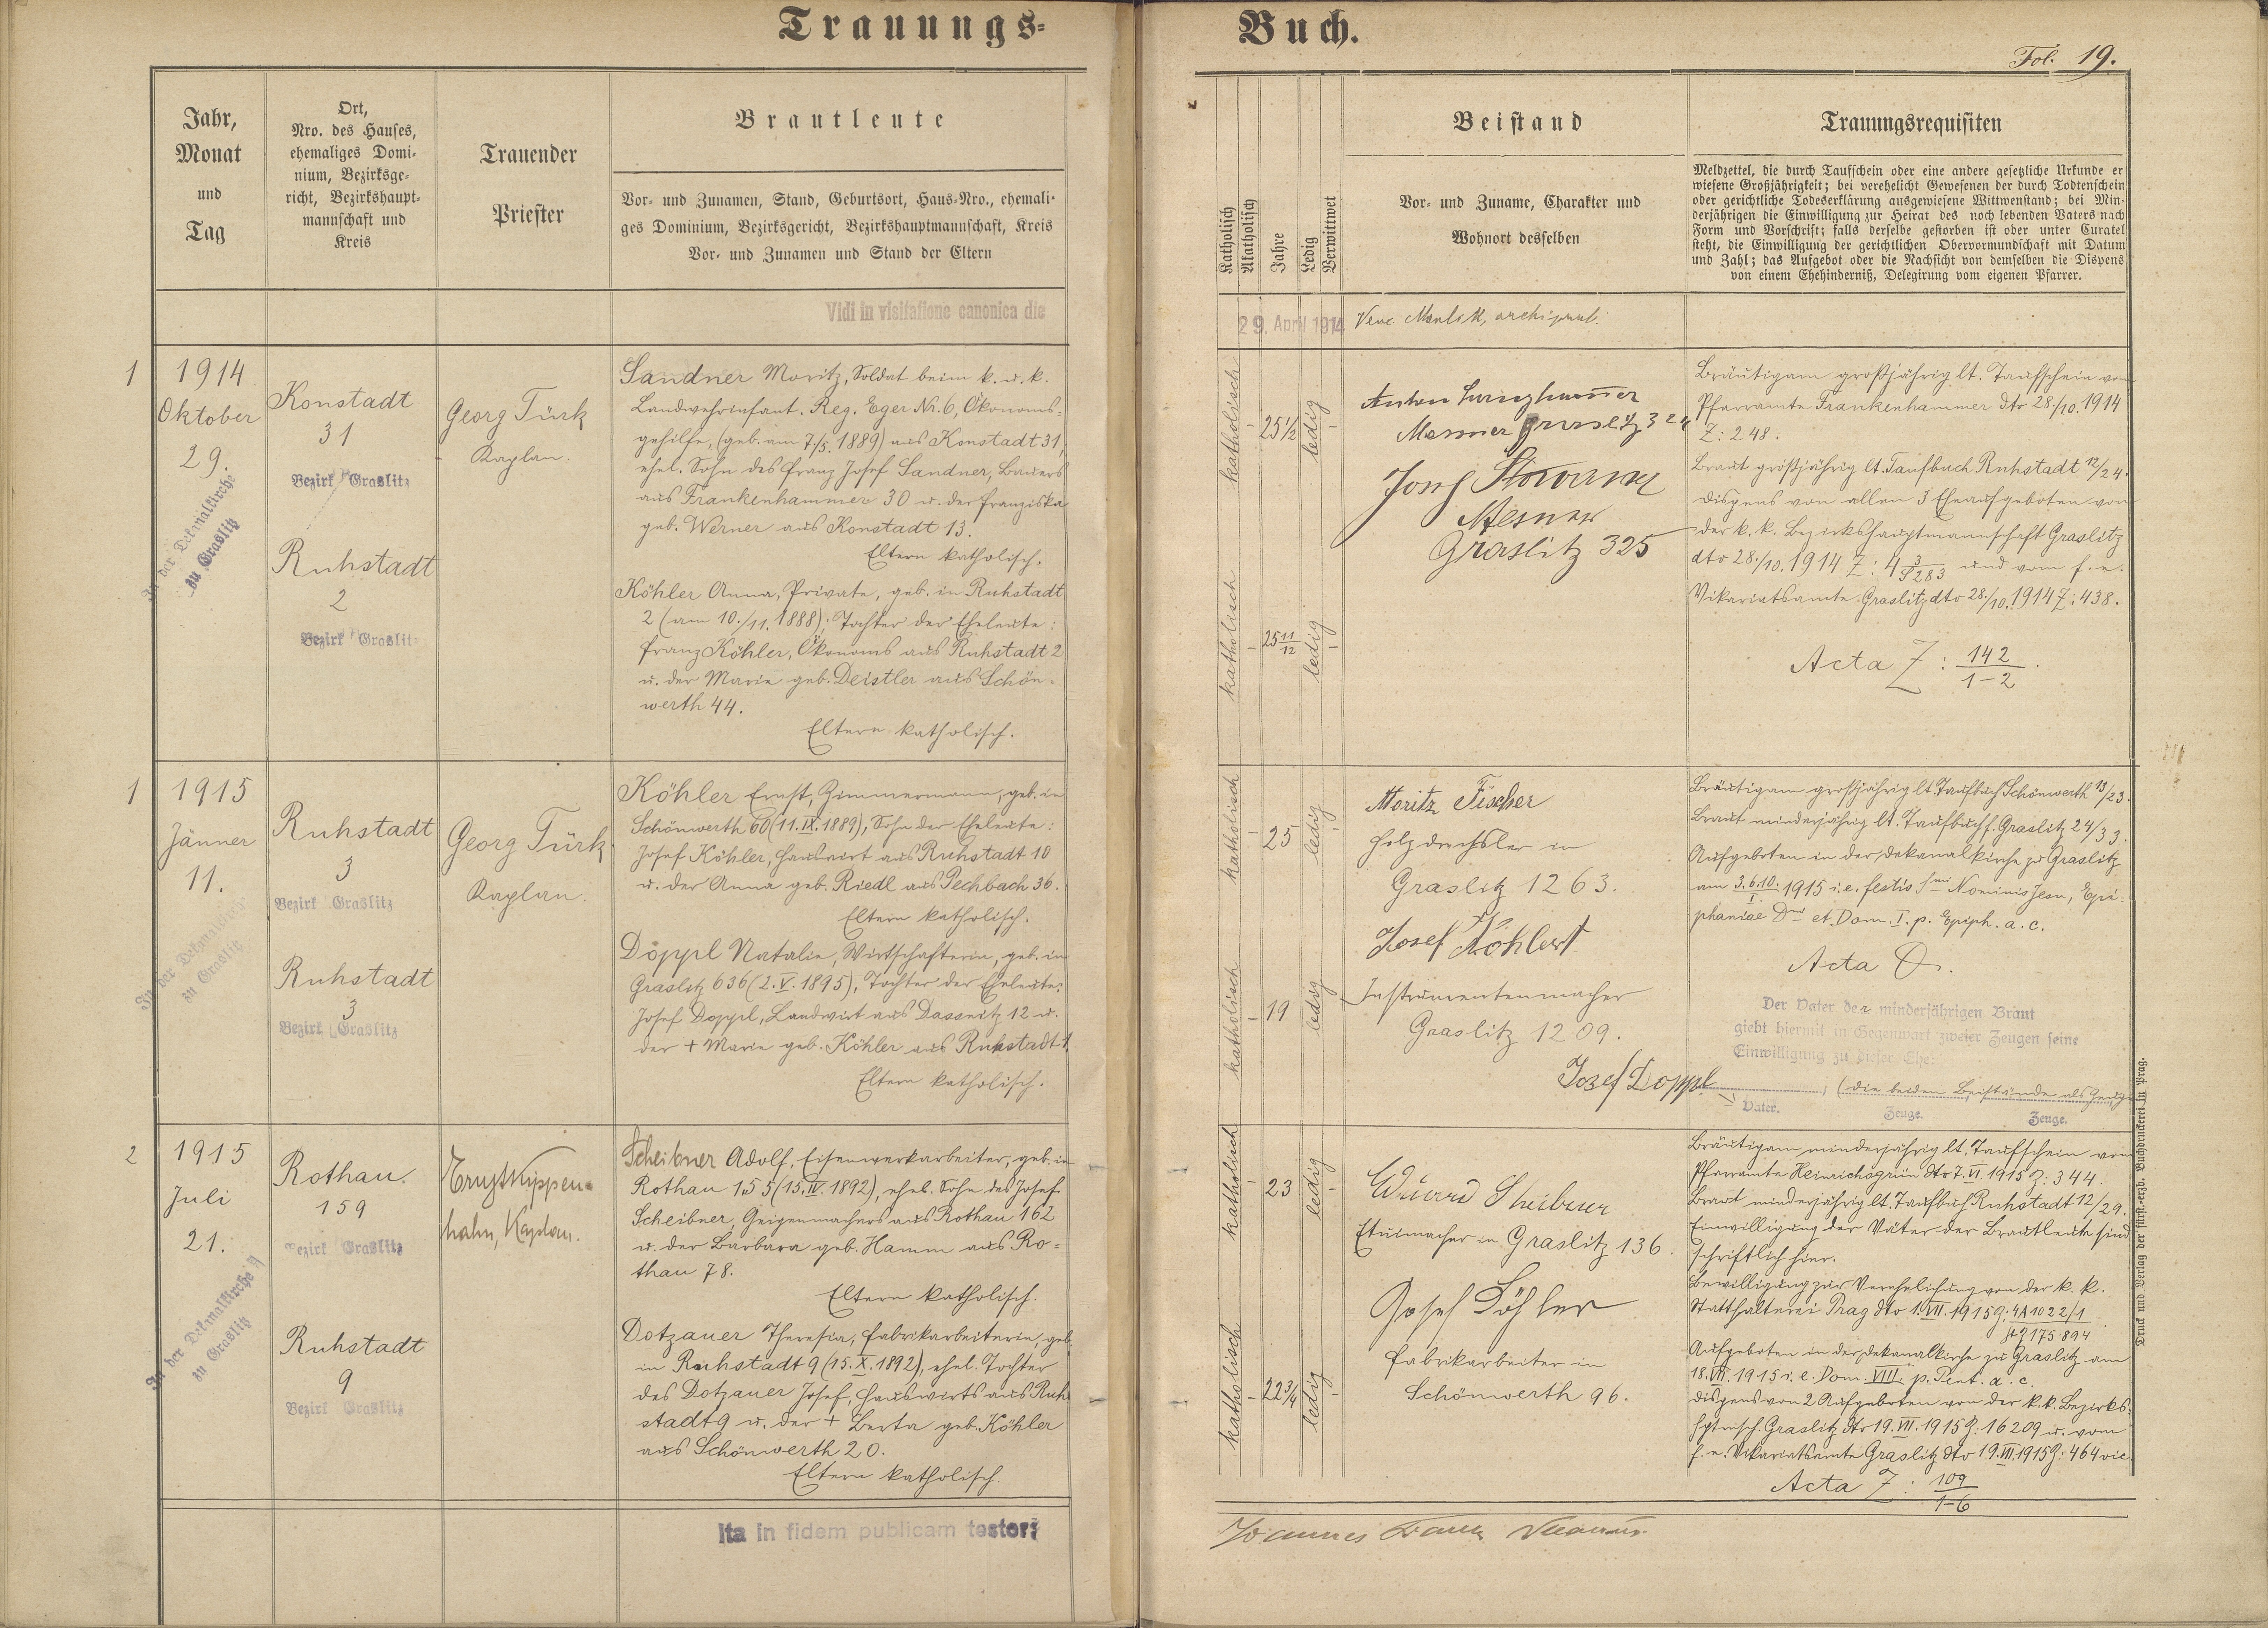 Trauungs-
Buch.
Fol. 19.
Jahr,
Monat
und
Tag
Ort,
Nro. des Hauses,
ehemaliges Domi-
nium, Bezirksge-
richt, Bezirkshaupt-
mannschaft und
Kreis
Trauender
Priester
Brautleute
Vor- und Zunamen, Stand, Geburtsort, Haus-Nro., ehemali-
ges Dominium, Bezirksgericht, Bezirkshauptmannschaft, Kreis
Vor- und Zunamen und Stand der Eltern
Katholisch
Akatholisch
Jahre
Ledig
Verwittwet
Beistand
Vor- und Zuname, Charakter und
Wohnort desselben
Trauungsrequisiten
Meldzettel, die durch Taufschein oder eine andere gesetzliche Urkunde er
wiesene Großjährigkeit; bei verehelicht Gewesenen der durch Todtenschein
oder gerichtliche Todeserklärung ausgewiesene Wittwenstand; bei Min-
derjährigen die Einwilligung zur Heirat des noch lebenden Vaters nach
Form und Vorschrift; falls derselbe gestorben ist oder unter Curatel
steht, die Einwilligung der gerichtlichen Obervormundschaft mit Datum
und Zahl; das Aufgebot oder die Nachsicht von demselben die Dispens
von einem Ehehinderniß, Delegirung vom eigenen Pfarrer.
Vidi in visitatione canonica die
29. April 1914
1
1914
Oktober
29.
In der Dekanalkirche
zu Graslitz
Konstadt
31
Bezirk Graslitz
Ruhstadt
2
Bezirk Graslitz
Georg Türk
Kaplan.
Sandner Moritz, Soldat beim k. u. k.
Landwehrinfant. Reg. Eger Nr. 6, Ökonoms-
gehilfe, (geb. am 7./5. 1889) aus Konstadt 31,
ehel. Sohn des Franz Josef Sandner, Bauers
aus Frankenhammer 30 u. der Franziska
geb. Werner aus Konstadt 13.
Eltern katholisch.
Köhler Anna, Private, geb. in Ruhstadt
2 (am 10./11. 1888); Tochter der Eheleute:
Franz Köhler, Ökonoms aus Ruhstadt 2
u. der Marie geb. Deistler aus Schön-
werth 44.
Eltern katholisch.
katholisch
25 1/2
ledig
katholisch
25 11/12
ledig
Anton
Mesner Graslitz 324
Josef
Mesner
Graslitz 325
Bräutigam großjährig lt. Taufschein vom
Pfarramte Frankenhammer dto 28./10. 1914
Z: 248.
Braut großjährig lt. Taufbuch Ruhstadt 12/24.
Dispens von allen 3 Eheaufgeboten von
der k. k. Bezirkshauptmannschaft Graslitz
dto 28./10. 1914 Z: 4 3/S283 und vom f. e.
Vikariatsamte Graslitz dto 28./10. 1914 Z: 438.
Acta Z: 142/1-2.
1
1915
Jänner
11.
In der Dekanalkirche
zu Graslitz
Ruhstadt
3
Bezirk Graslitz
Ruhstadt
3
Bezirk Graslitz
Georg Türk
Kaplan.
Köhler Ernst, Zimmermann, geb. in
Schönwerth 60 (11. IX. 1889), Sohn der Eheleute:
Josef Köhler, Hauswirt aus Ruhstadt 10
u. der Anna geb. Riedl aus Pechbach 36.
Eltern katholisch.
Döppl Natalie, Wirtschafterin, geb. in
Graslitz 636 (2. V. 1895), Tochter der Eheleute:
Josef Doppl, Landwirt aus Dassnitz 12 u.
der + Marie geb. Köhler aus Ruhstadt 1.
Eltern katholisch.
katholisch
25
ledig
katholisch
19
ledig
Moritz Fischer
Holzdrechsler in
Graslitz 1263.
Josef Köhlert
Instrumentenmacher
Graslitz 1209.
Josef Doppl
Bräutigam großjährig lt. Taufbuch Schönwerth 13/23.
Braut minderjährig lt. Taufbuch Graslitz 24/33.
Aufgeboten in der Dekanalkirche zu Graslitz
am 3. 6. 10. I. 1915 i. e. festis Smi Nominis Jesu, Epi-
phaniae Dni et Dom. I. p. Epiph. a. c.
Acta
Der Vater der minderjährigen Braut
giebt hiermit in Gegenwart zweier Zeugen seine
Einwilligung zu dieser Ehe:
(die beiden Beistände als Zeugen
Vater.
Zeuge.
Zeuge.
2
1915
Juli
21.
In der Dekanalkirche
zu Graslitz
Rothau.
159
Bezirk Graslitz
Ruhstadt
9
Bezirk Graslitz
Ernst Kippen-
hahn, Kaplan.
Scheibner Adolf, Eisenwerkarbeiter, geb. in
Rothau 155 (15. IV. 1892), ehel. Sohn des Josef
Scheibner, Geigenmachers aus Rothau 162
u. der Barbara geb. Hamm aus Ro-
thau 78.
Eltern katholisch.
Dotzauer Theresia, Fabrikarbeiterin, geb.
in Ruhstadt 9 (15. X. 1892), ehel. Tochter
des Dotzauer Josef, Hauswirts aus Ruh-
stadt 9 u. der + Berta geb. Köhler
aus Schönwerth 20.
Eltern katholisch.
katholisch
23
ledig
katholisch
22 3/4
ledig
Eduard Scheibner
Etuimacher in Graslitz 136.
Josef Köhler
Fabrikarbeiter in
Schönwerth 96.
Bräutigam minderjährig lt. Taufschein vom
Pfarramte Heinrichsgrün dto 7. VI. 1915 Z: 344.
Braut minderjährig lt. Taufbuch Ruhstadt 12/29.
Einwilligung der Väter der Brautleute sind
schriftlich hier.
Bewilligung zur Verehelichung von der k. k.
Statthalterei Prag dto 1. VII. 1915 Z: 4A 1022/1
175894
Aufgeboten in der Dekanalkirche zu Graslitz am
18. VII. 1915 i. e. Dom. VIII. p. Pent. a. c.
Dispens von 2 Aufgeboten von der k. k. Bezirks-
hptmsch. Graslitz dto 19. VII. 1915 Z: 16209 u. vom
f. e. Vikariatsamte Graslitz dto 19. VII. 1915 Z: 464 vic.
Acta Z: 109/1-6
Ita in fidem publicam testor:
Joannes
Druck und Verlag der fürst.-erzb. Buchdruckerei in Prag.